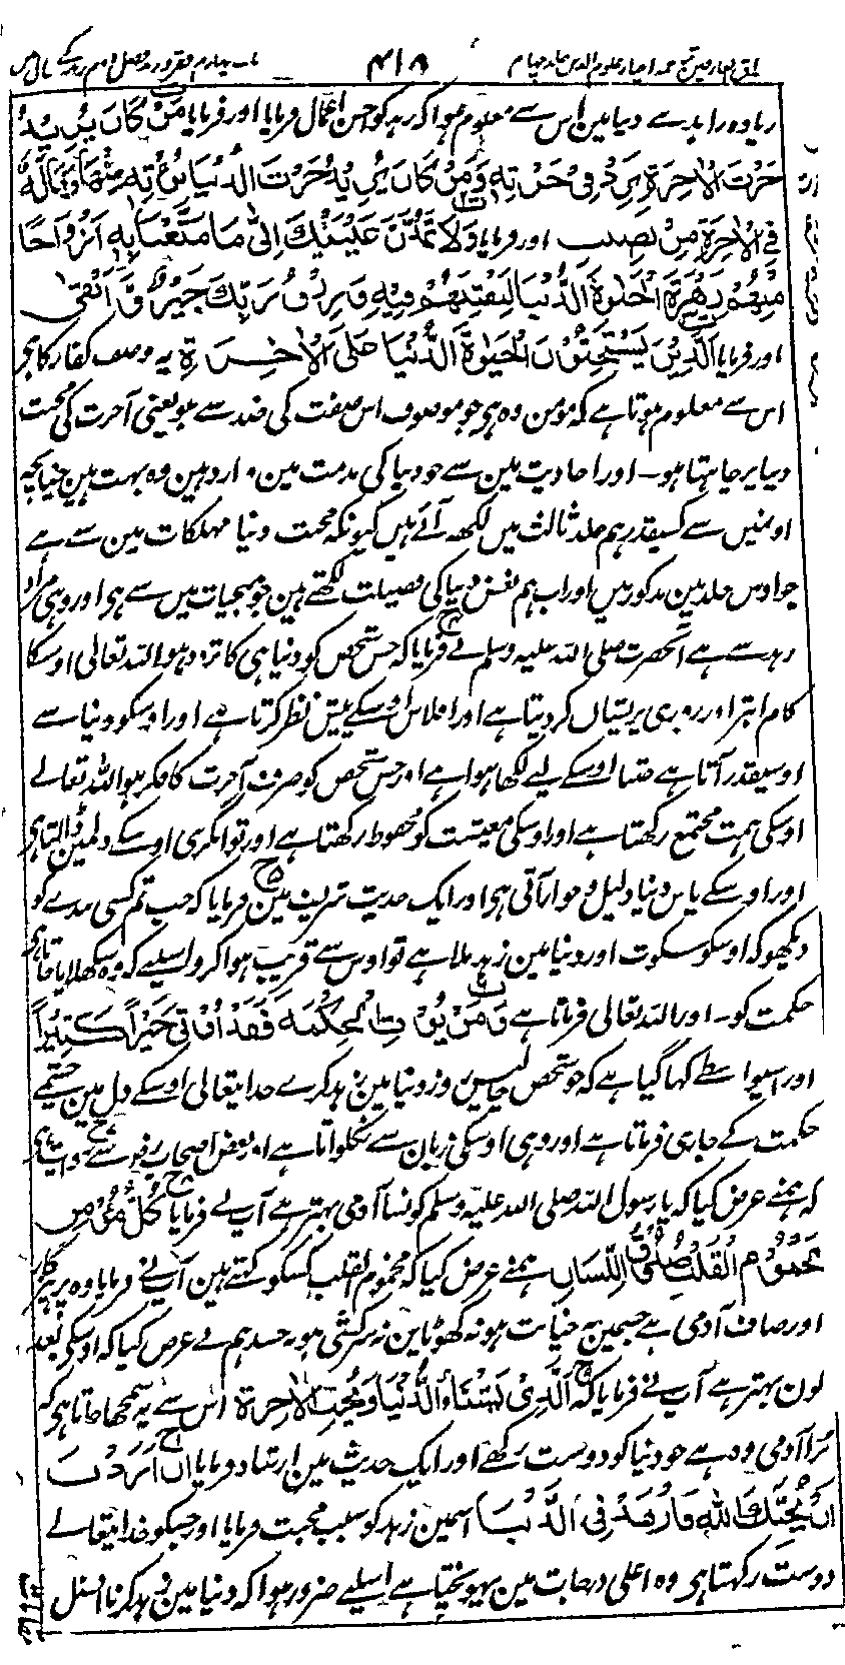 باب چہارم فقر و زہد فصل دوم زہد کے بیان میں ۴۱۸ مذاق العارفین ترجمہ احیاء علوم الدین جلد چہارم
زیادہ زاہد ہے دنیا مین اس سے معلوم ہوا کہ زہد کو حسن اعمال فرمایا اور فرمایا مَنْ كَانَ يُرِيْدُ
حَرْثَ الْاٰخِرَةِ نَزِدْ فِيْ حَرْثِهٖ وَمَنْ كَانَ يُرِيْدُ حَرْثَ الدُّنْيَا نُؤْتِهٖ مِنْهَا وَمَا لَهٗ
فِي الْاٰخِرَةِ مِنْ نَصِيْبٍ اور فرمایا وَلَا تَمُدَّنَّ عَيْنَيْكَ اِلٰى مَا مَتَّعْنَا بِهٖ اَزْوَاجًا
مِنْهُمْ زَهْرَةَ الْحَيٰوةِ الدُّنْيَا لِنَفْتِنَهُمْ فِيْهِ وَرِزْقُ رَبِّكَ خَيْرٌ وَّاَبْقٰى
اور فرمایا اَلَّذِيْنَ يَسْتَحِبُّوْنَ الْحَيٰوةَ الدُّنْيَا عَلَى الْاٰخِرَةِ یہ وصف کفار کا ہے
اس سے معلوم ہوتا ہے کہ مومن وہ ہی جو موصوف اس صفت کی ضد سے ہو یعنی آخرت کی محبت
دنیا پر چاہتا ہو۔ اور احادیث مین سے جو دنیا کی مذمت مین وارد ہین وہ بہت ہین چنانچہ
اونمیں سے کسیقدر ہم جلد ثالث میں لکھ آئے ہیں کیونکہ محبت دنیا مہلکات مین سے ہے
جو اوس جلد مین مذکور ہیں اور اب ہم بغض دنیا کی فضیلت لکھتے ہین جو منجیات میں سے ہی اور وہی مراد
زہد سے ہے آنحضرت صلی اللہ علیہ وسلم نے فرمایا کہ جس شخص کو دنیا ہی کا تردد ہو اللہ تعالی اوسکا
کام ابتر اور روزی پریشاں کر دیتا ہے اور افلاس اوسکے پیش نظر کرتا ہے اور اوسکو دنیا سے
اوسیقدر آتا ہے جتنا اوسکے لیے لکھا ہوا ہے اور جس شخص کو صرف آخرت کا فکر ہو اللہ تعالے
اوسکی ہمت مجتمع رکھتا ہے اور اوسکی معیشت کو محفوظ رکھتا ہے اور توانگری اوسکے دلمین ڈالتا ہی
اور اوسکے پاس دنیا ذلیل و خوار آتی ہی اور ایک حدیث شریف مین فرمایا کہ جب تم کسی بندے کو
دیکھو کہ اوسکو سکوت اور دنیا مین زہد ملا ہے تو اوس سے قریب ہوا کرو اسلیے کہ وہ سکھلایا جاتا ہی
حکمت کو۔ اور اللہ تعالی فرماتا ہے وَمَنْ يُّؤْتَ الْحِكْمَةَ فَقَدْ اُوْتِيَ خَيْرًا كَثِيْرًا
اور اسیواسطے کہا گیا ہے کہ جو شخص چالیس روز دنیا مین زہد کرے خدایتعالی اوسکے دل مین چشمے
حکمت کے جاری فرماتا ہے اور وہی اوسکی زبان سے نکلواتا ہے اور بعض اصحاب رضہ سے روایت ہی
کہ ہمنے عرض کیا کہ یا رسول اللہ صلی اللہ علیہ وسلم کونسا آدمی بہتر ہے آپ نے فرمایا كُلُّ مُؤْمِنٍ
مَخْمُوْمِ الْقَلْبِ صَدُوْقِ اللِّسَانِ ہمنے عرض کیا کہ مخموم القلب کسکو کہتے ہین آپ نے فرمایا وہ پرہیزگار
اور صاف آدمی ہے جسمین نہ خیانت ہو نہ کھوٹا پن نہ سرکشی ہو نہ حسد ہم نے عرض کیا کہ اوسکے بعد
کون بہتر ہے آپ نے فرمایا کہ اَلَّذِيْ يَشْنَاُ الدُّنْيَا وَيُحِبُّ الْاٰخِرَةَ اس سے یہ سمجھا جاتا ہی کہ
بُرا آدمی وہ ہے جو دنیا کو دوست رکھے اور ایک حدیث مین ارشاد فرمایا اِنْ اَرَدْتَ
اَنْ يُّحِبَّكَ اللهُ فَازْهَدْ فِي الدُّنْيَا اسمین زہد کو سبب محبت فرمایا اور جسکو خدایتعالے
دوست رکھتا ہی وہ اعلی درجات مین پہونچتا ہے اسلیے ضرور ہوا کہ دنیا مین زہد کرنا افضل